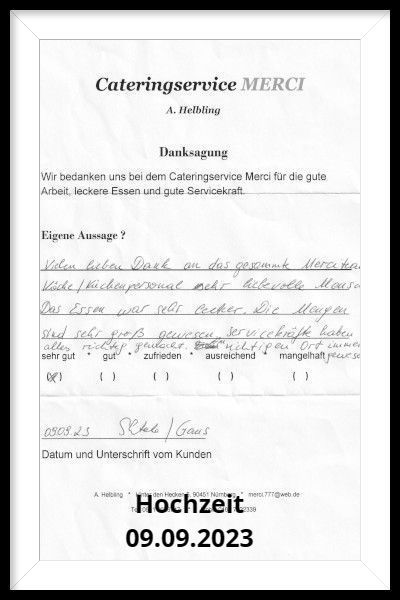 Cateringservice MERCI
A. Helbling
Danksagung
Wir bedanken uns bei dem Cateringservice Merci für die gute
Arbeit, leckere Essen und gute Servicekraft.
Eigene Aussage ?
Vielen lieben Dank an das gesammte Merciteam
Köche/Küchenpersonal sehr liebevolle Mensc
Das Essen war sehr lecker. Die Mengen
sind sehr groß gewesen. Servicekräfte haben
alles richtig gemacht. richtigen Ort immer
sehr gut * gut * zufrieden * ausreichend * mangelhaft gewese
( ) ( ) ( ) ( ) ( )
09.09.23 / Gaus
Datum und Unterschrift vom Kunden
A. Helbling * Hinter den Hecken 5, 90451 Nürnberg * merci.777@web.de
Hochzeit
09.09.2023